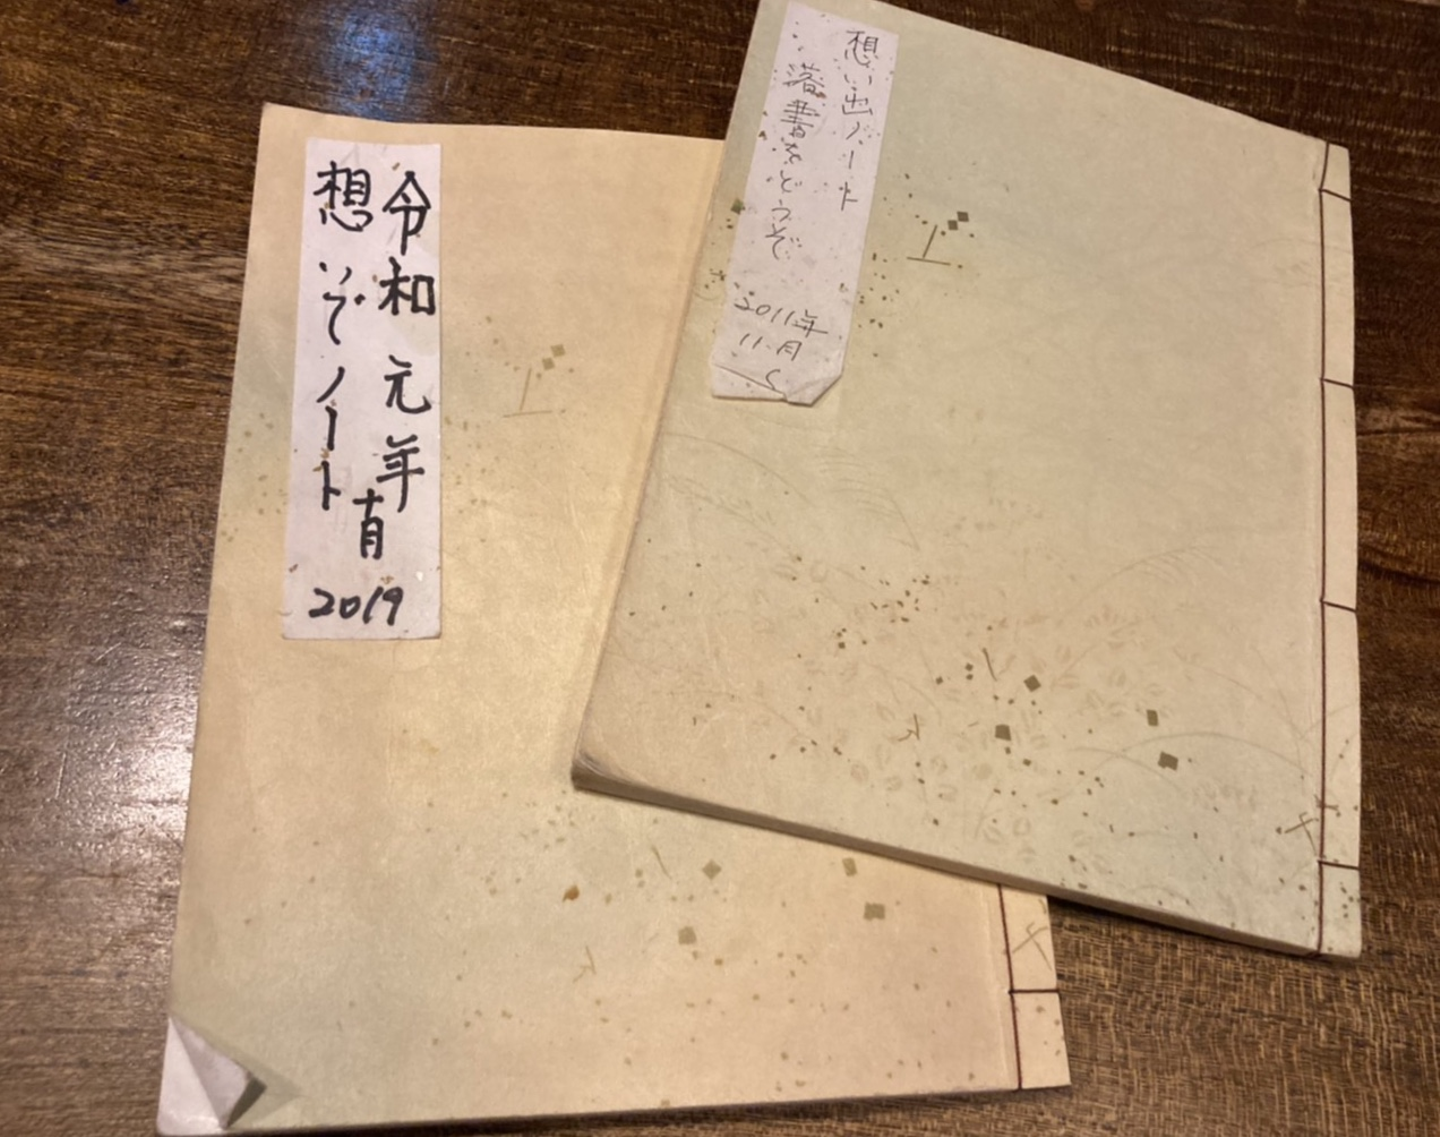 令和元年十月
想いでノート
2019
想い出ノート
落書をどうぞ
2011年
11月
〜